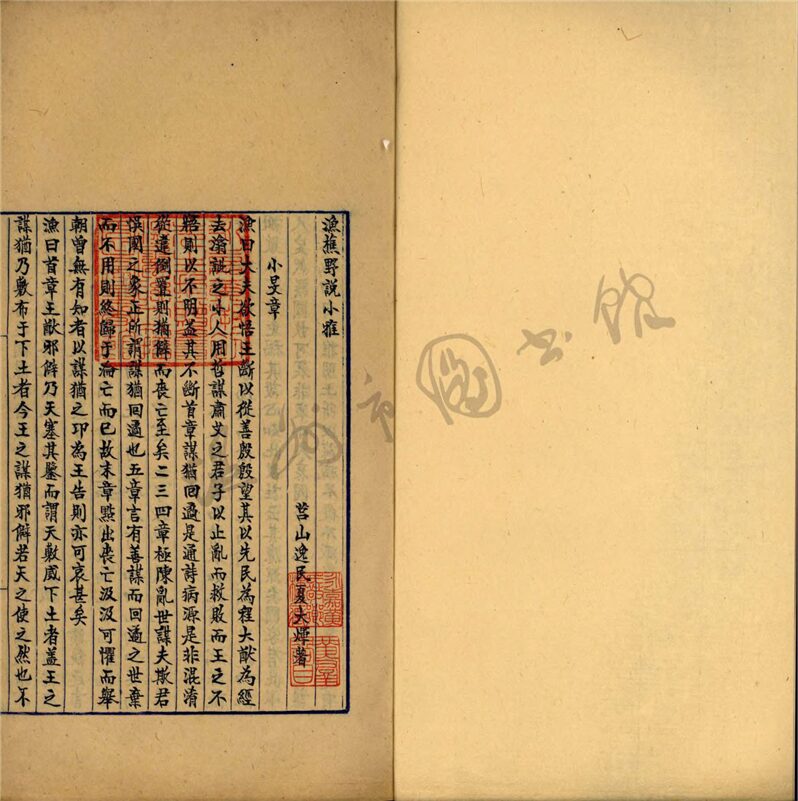 漁樵野說小雅
莒山逸民夏大煇著
小旻章
漁曰大夫欲悟王斷以從善殷殷望其以先民為程大猷為經
去瀹訿之小人用哲謀肅艾之君子以止亂而救敗而王之不
寤則以不明益其不斷首章謀猶回遹是通詩病源是非混淆
從違倒置則猶辟而喪亡至矣二三四章極陳亂世謀夫欺君
悞國之象正所謂謀猶回遹也五章言有善謀而回遹之世棄
而不用則終歸于淪亡而已故末章點出喪亡汲汲可懼而舉
朝曾無有知者以謀猶之邛為王告則亦可哀甚矣
漁曰首章王猷邪僻乃天塞其鑒而謂天敷威下土者盖王之
謀猶乃敷布于下土者今王之謀猶邪僻若天之使之然也不
圖書館